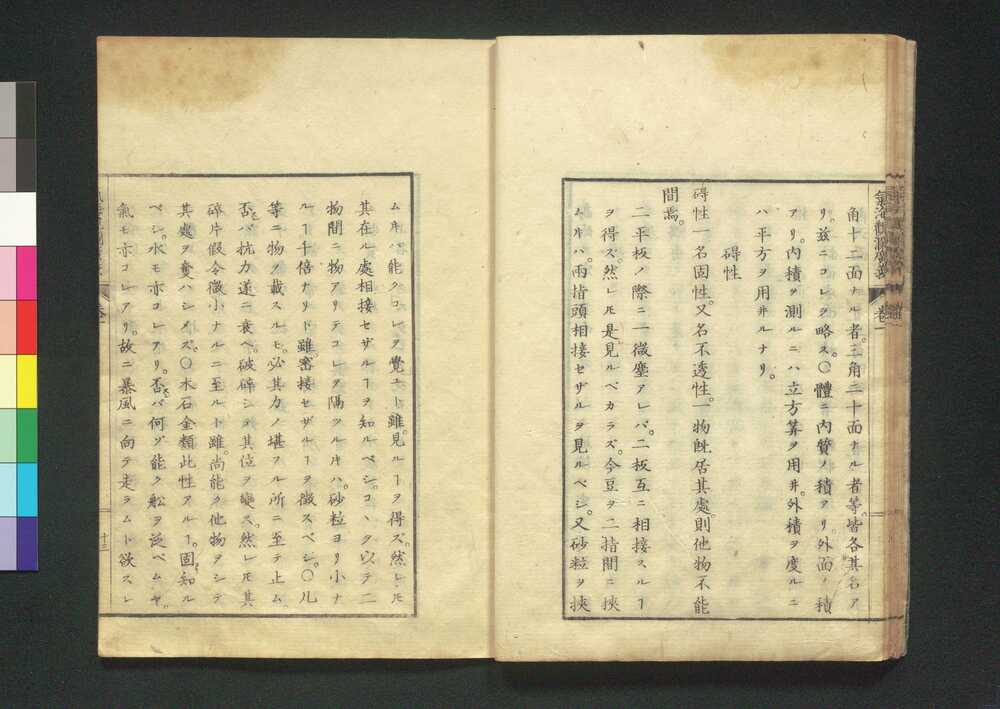 氣海觀瀾廣義 卷一
角十二面ナル者。三角二十面ナル者等。皆各其名ア
リ。玆ニコレヲ略ス。〇體ニ內質ノ積アリ。外面ノ積
アリ。內積ヲ測ルニハ立方算ヲ用ヰ。外積ヲ度ルニ
ハ平方ヲ用ヰルナリ。
碍性
碍性一名固性。又名不透性。一物既居其處。則他物不能
間焉。
二平板ノ際ニ一微塵アレバ。二板互ニ相接スルヿ
ヲ得ズ。然レ𪜈是見ルベカラズ。今豆ヲ二指間ニ挾
ムキハ。兩指頭相接セザルヲ見ルベシ。又砂粒ヲ挾
ムキハ能クコレヲ覺ユト雖。見ルヿヲ得ズ。然レ𪜈
其在ル處相接セザルヿヲ知ルベシ。コヽヲ以テ二
物間ニ物アリテコレヲ隔ツルキハ。砂粒ヨリ小ナ
ルヿ千倍ナリト雖。密接セザルヿヲ徵スベシ。〇凡
等ニ物ヲ載スルモ。必其力ノ堪フル所ニ至テ止ム。
否ザレバ抗力遂ニ衰ヘ。破碎シテ其位ヲ變ズ。然レ𪜈其
碎片假令微小ナルニ至ルト雖。尚能ク他物ヲシテ
其處ヲ奪ハシメズ。〇木石金類此性アルヿ。固知ル
ベシ。水モ亦コレアリ。否ザレバ何ゾ能ク舩ヲ泛ベムヤ。
氣モ亦コレアリ。故ニ暴風ニ向テ走ラムト欲スレ
卷一
十三